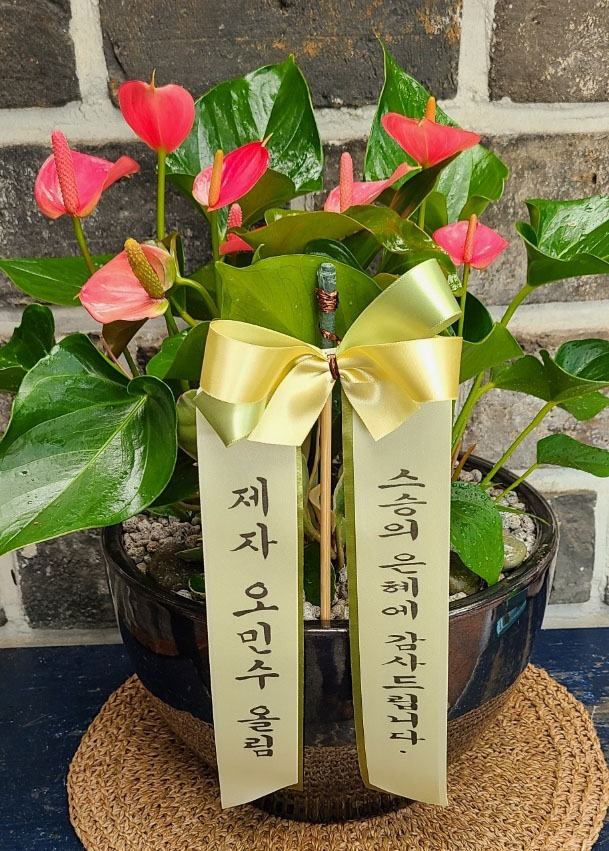 스승의 은혜에 감사드립니다.
제자 오민수 올림